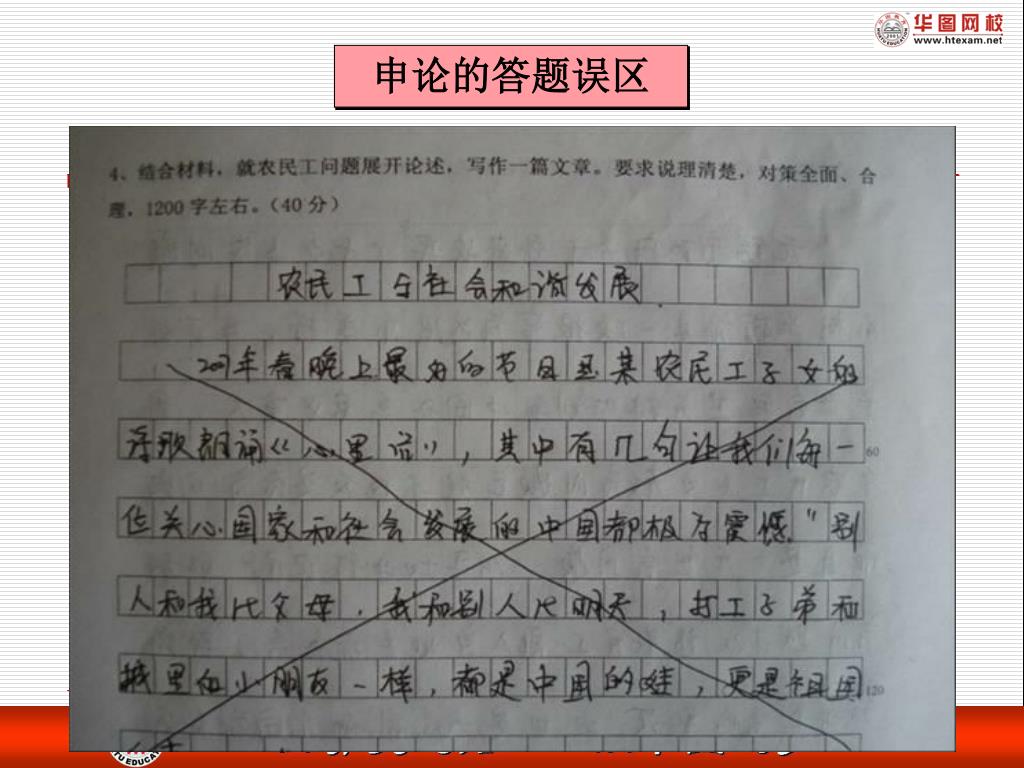 华图网校
www.htexam.net
申论的答题误区
4、结合材料，就农民工问题展开论述，写作一篇文章。要求说理清楚，对策全面、合
理，1200字左右。（40分）
农民工与社会和谐发展
年春晚上最为的节目是某农民工子女的
诗歌朗诵《心里话》，其中有几句让我们每一
60
位关心国家和社会发展的中国都极为震憾“别
人和我比父母，我和别人比明天，打工子弟和
城里的小朋友一样，都是中国的娃，更是祖国
120